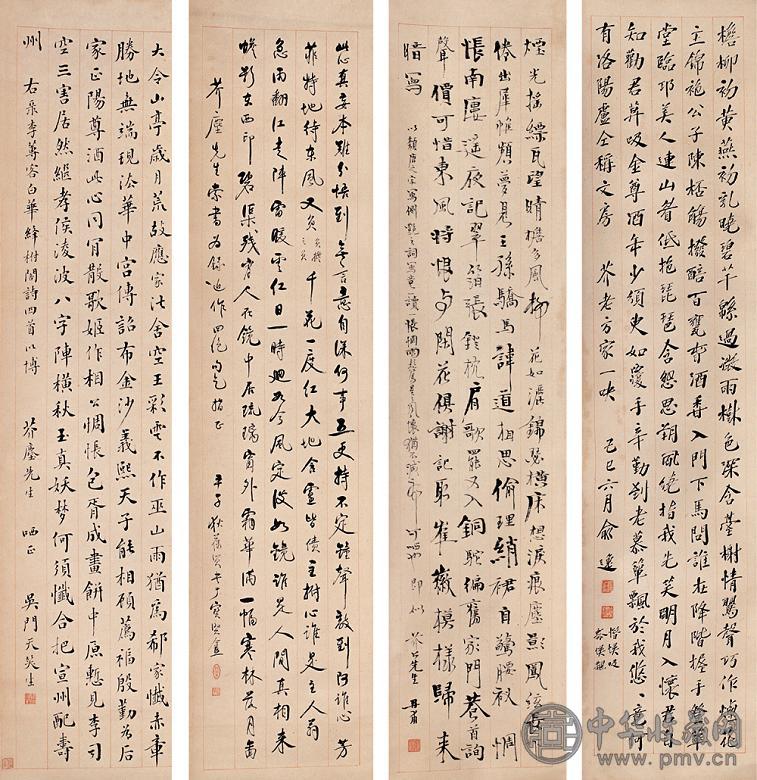 檐柳初黄燕初乳晓碧芊绵過微雨樹色深含臺榭情鶯聲巧作
主錦袍公子陳桮觴撥醅百甕春酒香入門下馬問誰在降階握手登華
堂臨邛美人連山眉低抱琵琶含怨思朔風繞指我先笑明月入懷君自
知勸君莫吸金尊酒年少須臾如覆手辛勤到老慕簞瓢於我悠悠竟何
有洛陽盧仝稱文房 芥老方家一哂 己巳六月俞逸
煙光搖縹瓦望晴檐多風柳花如灑錦瑟橫床想淚痕塵影鳳絃
倦出犀帷頻夢見王孫驕馬諱道相思偷理綃裙自驚腰衩惆
悵南樓遙夜記翠箔張鐙枕肩歌罷又入銅駝徧舊家門巷首詢
聲價可惜東風將恨與閑花俱謝記取崔徽模樣歸來
暗寫
芥公先生
此真妄本難分快到無言意自深何事五更持不定鐘聲敲到阿誰心芳
菲特地待東風又負千花一度紅大地含靈皆債主樹心誰是主人翁
急雨翻江走陣雷暖雲紅日一時迴如今風定波如鏡誰是人間真相來
蟾影東西印碧渠殘宵人在鏡中居琉璃窗外霜華滿一幅寒林發月圖
芥塵先生索書為錄近作四絕句乞指正 平子狄葆賢
大令山亭歲月荒 應家法舍空王彩雲不作巫山雨猶為郗家懺赤章
勝地無端現法華中宮傳詔布金沙義熙天子能相顧薦福殷勤為后
家正陽尊酒此心同 散歌姬作相公惆悵包胥成畫餅中原慙見李司
空三害居然繼孝侯凌波八字陣橫秋玉真妖夢何須懺合把宣州配壽
州 右录李蓴客白華絳柎閣詩四首以博 芥塵先生 哂正 吳門天笑生
中华收藏网
www.pmv.cn